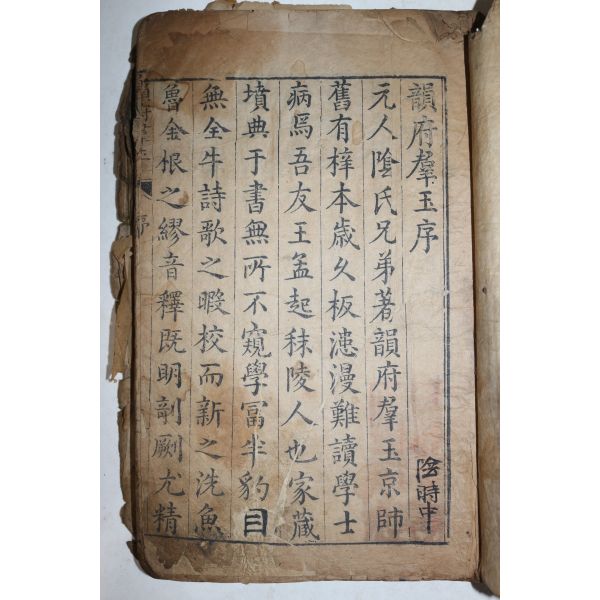 韻府羣玉序
陰時中
元人陰氏兄弟著韻府羣玉京師
舊有梓本歲久板漶漫難讀學士
病焉吾友王孟起秣陵人也家藏
墳典于書無所不窺學冨半豹目
無全牛詩歌之暇校而新之洗魚
魯金根之繆音釋既明剞劂尤精
序